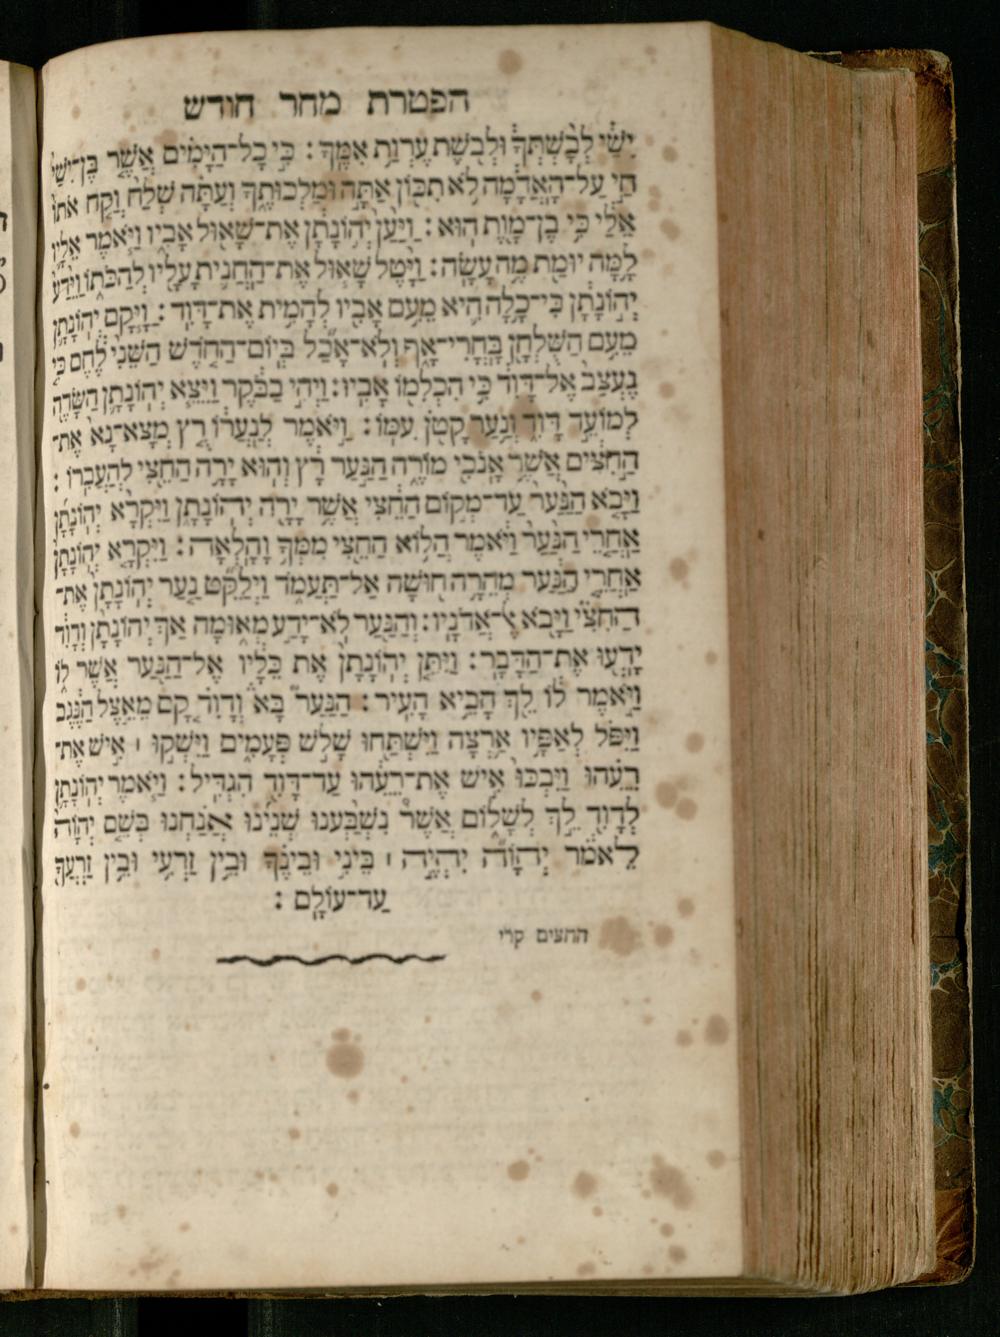 הפטרת מחר חודש
יִשַׁי לְבָשְׁתְּךָ וּלְבֹשֶׁת עֶרְוַת אִמֶּךָ : כִּי כָל־הַיָּמִים אֲשֶׁר בֶּן־יִשַׁי
חַי עַל־הָאֲדָמָה לֹא תִכּוֹן אַתָּה וּמַלְכוּתֶךָ וְעַתָּה שְׁלַח וְקַח אֹתוֹ
אֵלַי כִּי בֶן־מָוֶת הוּא : וַיַּעַן יְהוֹנָתָן אֶת־שָׁאוּל אָבִיו וַיֹּאמֶר אֵלָיו
לָמָּה יוּמַת מֶה עָשָׂה : וַיָּטֶל שָׁאוּל אֶת־הַחֲנִית עָלָיו לְהַכֹּתוֹ וַיֵּדַע
יְהוֹנָתָן כִּי־כָלָה הִיא מֵעִם אָבִיו לְהָמִית אֶת־דָּוִד : וַיָּקָם יְהוֹנָתָן
מֵעִם הַשֻּׁלְחָן בָּחֳרִי־אָף וְלֹא־אָכַל בְּיוֹם־הַחֹדֶשׁ הַשֵּׁנִי לֶחֶם כִּי
נֶעְצַב אֶל־דָּוִד כִּי הִכְלִמוֹ אָבִיו : וַיְהִי בַבֹּקֶר וַיֵּצֵא יְהוֹנָתָן הַשָּׂדֶה
לְמוֹעֵד דָּוִד וְנַעַר קָטֹן עִמּוֹ : וַיֹּאמֶר לְנַעֲרוֹ רֻץ מְצָא־נָא אֶת־
הַחִצִּים אֲשֶׁר אָנֹכִי מוֹרֶה הַנַּעַר רָץ וְהוּא יָרָה הַחֵצִי לְהַעֲבִרוֹ :
וַיָּבֹא הַנַּעַר עַד־מְקוֹם הַחֵצִי אֲשֶׁר יָרָה יְהוֹנָתָן וַיִּקְרָא יְהוֹנָתָן
אַחֲרֵי הַנַּעַר וַיֹּאמֶר הֲלוֹא הַחֵצִי מִמְּךָ וָהָלְאָה : וַיִּקְרָא יְהוֹנָתָן
אַחֲרֵי הַנַּעַר מְהֵרָה חוּשָׁה אַל־תַּעֲמֹד וַיְלַקֵּט נַעַר יְהוֹנָתָן אֶת־
הַחִצִּי וַיָּבֹא אֶל־אֲדֹנָיו : וְהַנַּעַר לֹא־יָדַע מְאוּמָה אַךְ יְהוֹנָתָן וְדָוִד
יָדְעוּ אֶת־הַדָּבָר : וַיִּתֵּן יְהוֹנָתָן אֶת כֵּלָיו אֶל־הַנַּעַר אֲשֶׁר לוֹ
וַיֹּאמֶר לוֹ לֵךְ הָבֵיא הָעִיר : הַנַּעַר בָּא וְדָוִד קָם מֵאֵצֶל הַנֶּגֶב
וַיִּפֹּל לְאַפָּיו אַרְצָה וַיִּשְׁתַּחוּ שָׁלֹשׁ פְּעָמִים וַיִּשְּׁקוּ ׀ אִישׁ אֶת־
רֵעֵהוּ וַיִּבְכּוּ אִישׁ אֶת־רֵעֵהוּ עַד־דָּוִד הִגְדִּיל : וַיֹּאמֶר יְהוֹנָתָן
לְדָוִד לֵךְ לְשָׁלוֹם אֲשֶׁר נִשְׁבַּעְנוּ שְׁנֵינוּ אֲנַחְנוּ בְּשֵׁם יְהוָה
לֵאמֹר יְהוָה יִהְיֶה ׀ בֵּינִי וּבֵינֶךָ וּבֵין זַרְעִי וּבֵין זַרְעֲךָ
עַד־עוֹלָם :
החצים קרי